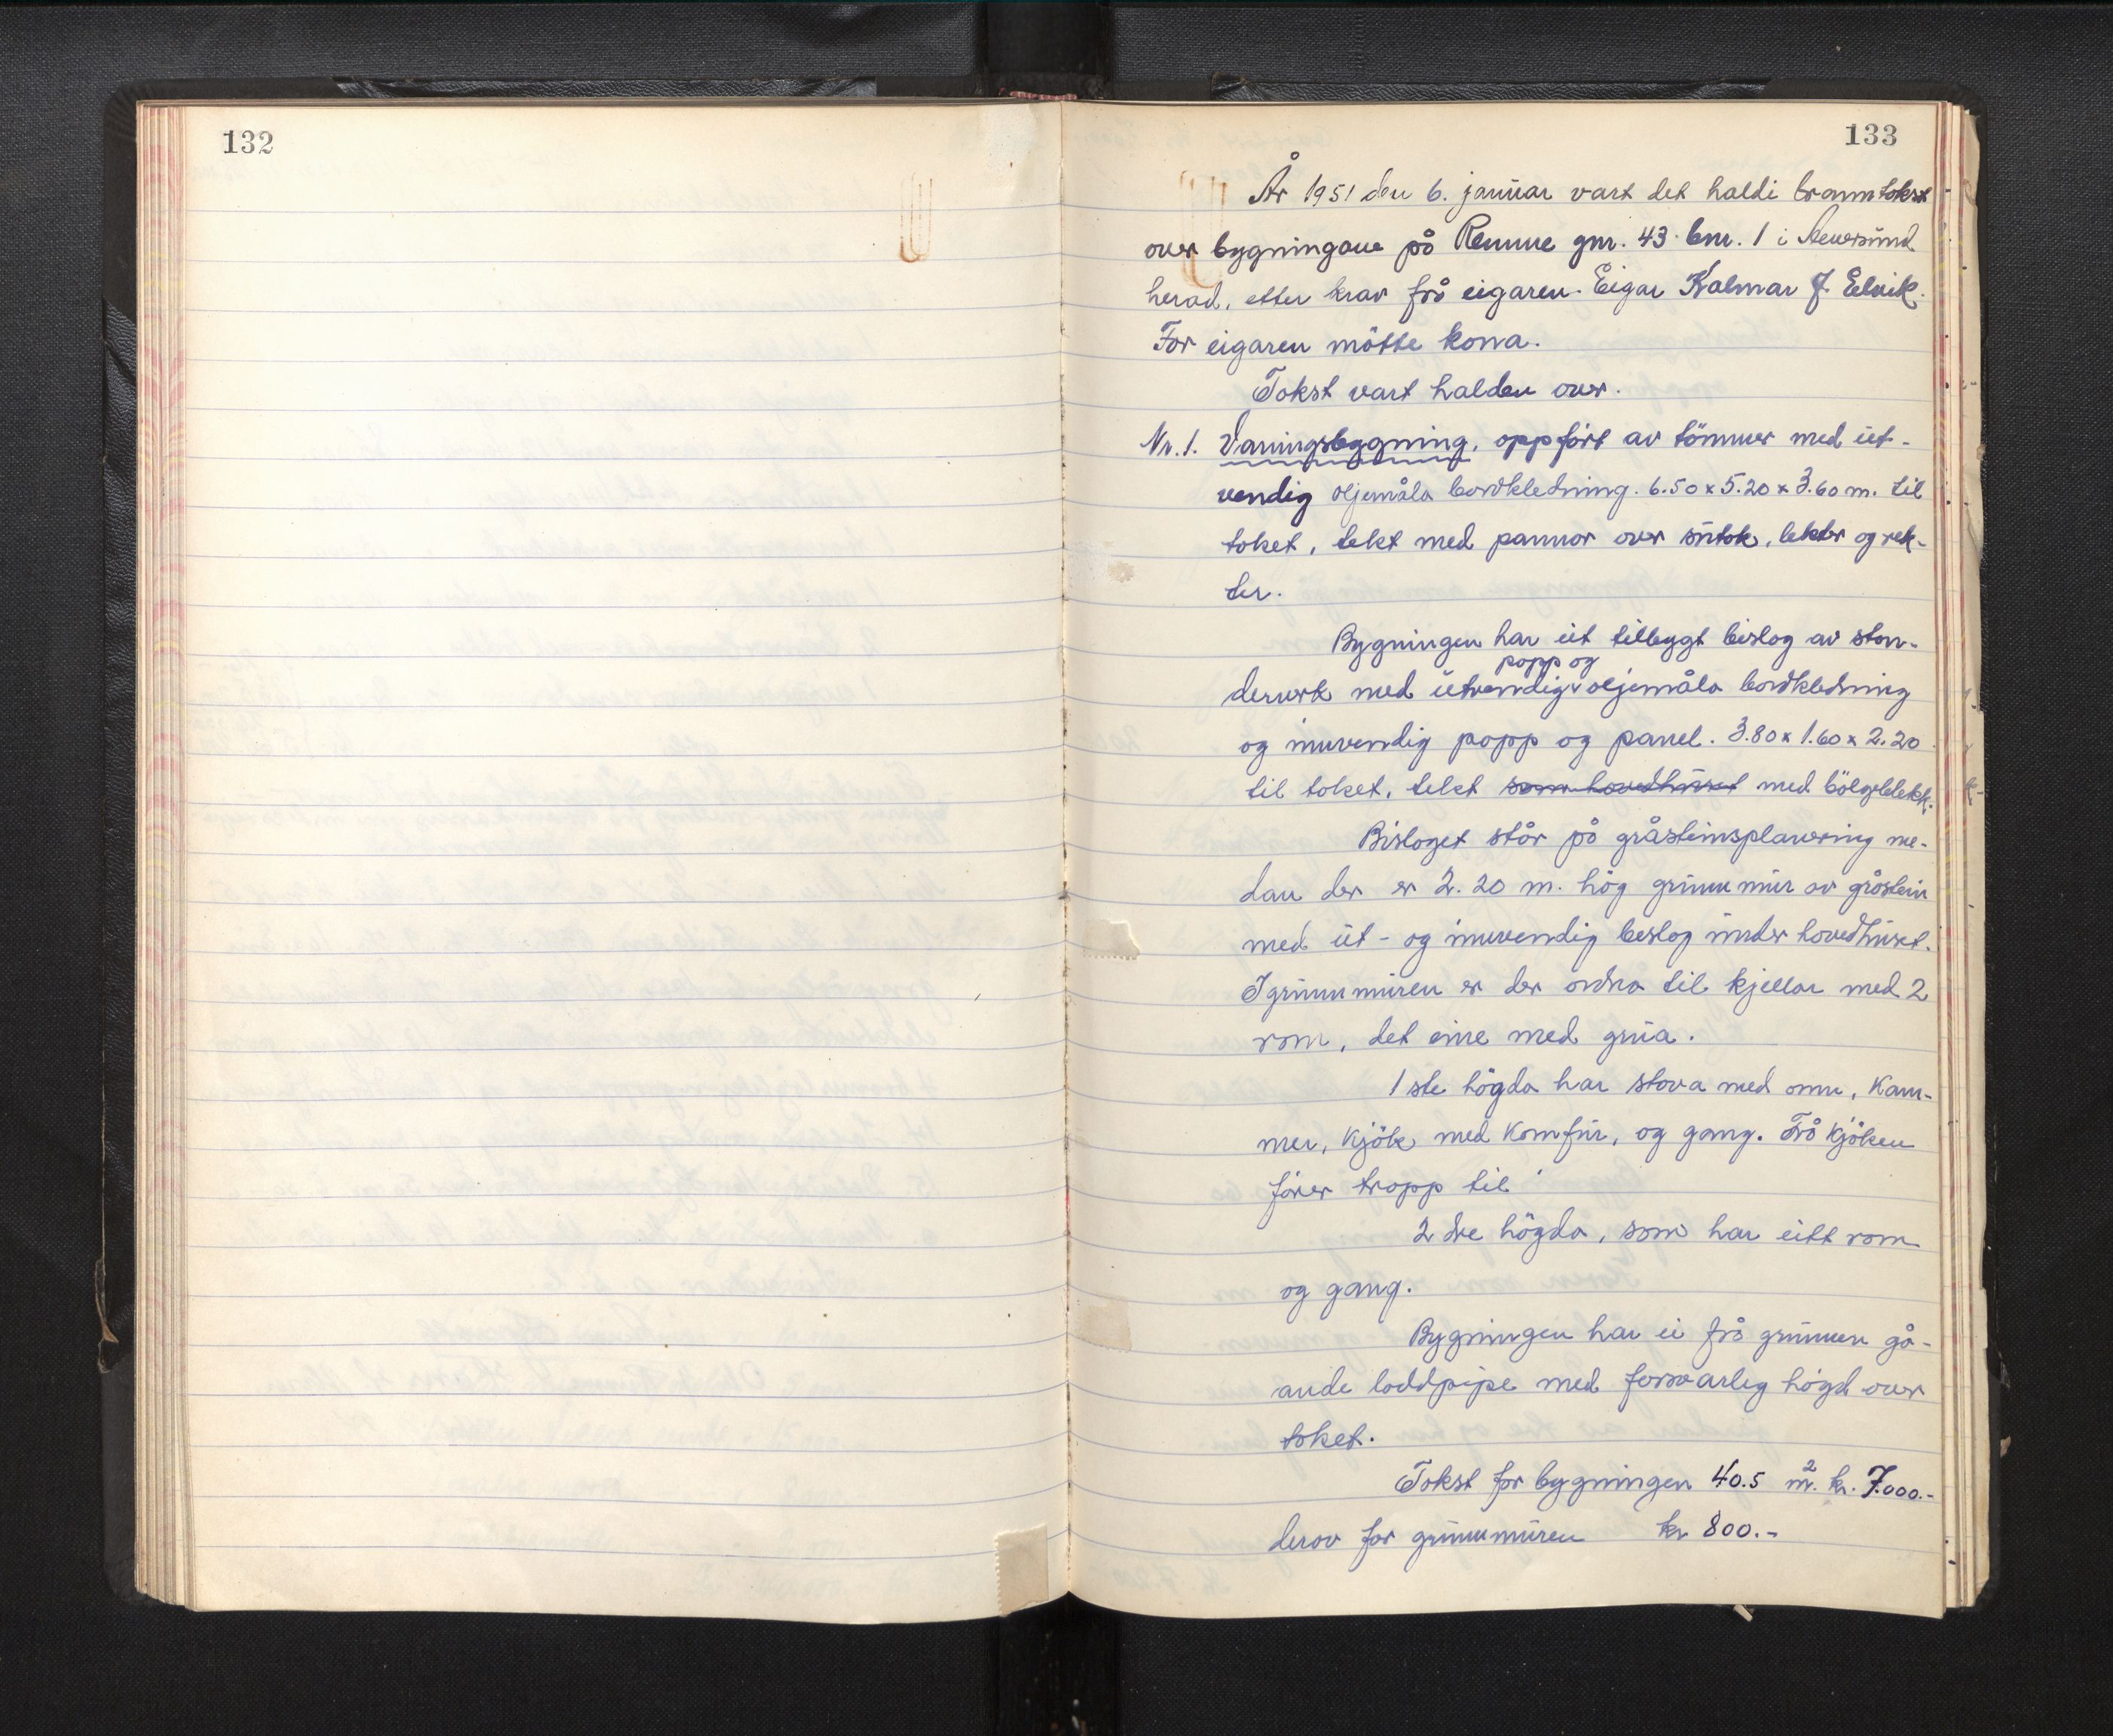 132
133
År 1951 den 6. januar vart det haldi branntakst
over bygningane på Remme gnr. 43 bnr. 1 i
herad, etter krav frå eigaren. Eigar Kalmar J. Eelvik.
For eigaren mötte kona.
Takst vart halden over.
Nr. 1. Våningsbygning, oppfört av tömmer med ut-
vendig oljemåla bordkledning. 6.50 x 5.20 x 3.60 m. til
taket, tekt med pannor over sutak, lekter og rek-
ter.
Bygningen har eit tilbygt bislag av stan-
papp og
derverk med utvendig v oljemåla bordkledning
og innvendig papp og panel. 3.80 x 1.60 x 2.20
til taket, tekt som hovedhuset med bölgeblekk.
Bislaget står på gråsteinsplanering me-
dan der er 2.20 m. hög grunnmur av gråstein
med ut- og innvendig beslag under hovedhuset.
I grunnmuren er der ordna til kjellar med 2
rom, det eine med grua.
1 ste högda har stova med omn, kam-
mer, kjök med komfur, og gang. Frå kjöken
förer tropp til
2 dre högda, som har eitt rom
og gang.
Bygningen har ei frå grunnen gå-
ande loddpipe med forsvarleg högd over
taket.
Takst for bygningen 40.5 m². kr. 7.000.-
derav for grunnmuren kr 800.-